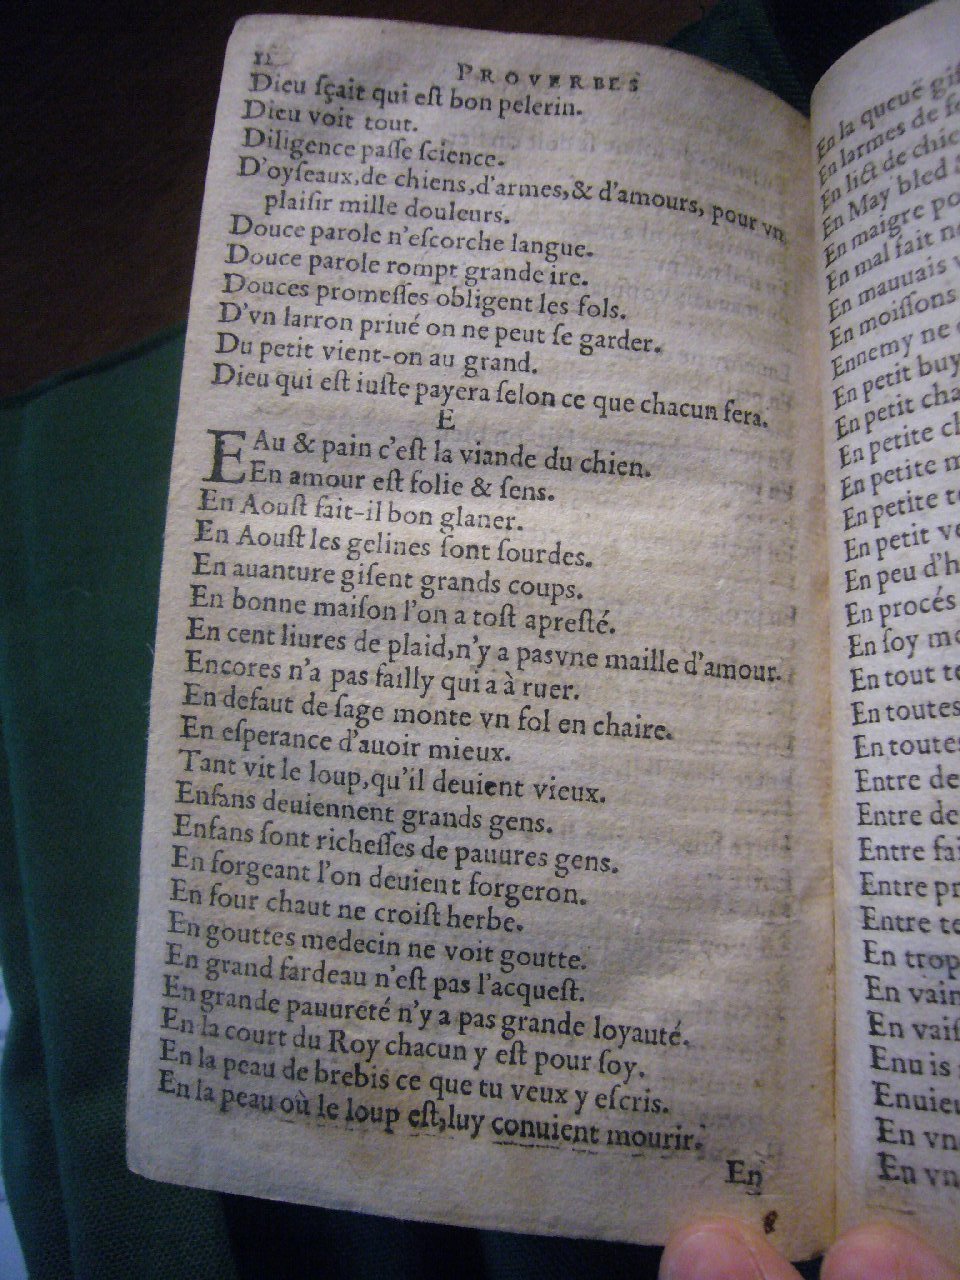 12
PROVERBES
Dieu sçait qui est bon pelerin.
Dieu voit tout.
Diligence passe science.
D'oyseaux, de chiens, d'armes, & d'amours, pour vn
plaisir mille douleurs.
Douce parole n'escorche langue.
Douce parole rompt grande ire.
Douces promesses obligent les fols.
D'vn larron priué on ne peut se garder.
Du petit vient-on au grand.
Dieu qui est iuste payera selon ce que chacun fera.
E
EAu & pain c'est la viande du chien.
En amour est folie & sens.
En Aoust fait-il bon glaner.
En Aoust les gelines sont sourdes.
En auanture gisent grands coups.
En bonne maison l'on a tost apresté.
En cent liures de plaid, n'y a pas vne maille d'amour.
Encores n'a pas failly qui a à ruer.
En defaut de sage monte vn fol en chaire.
En esperance d'auoir mieux.
Tant vit le loup, qu'il deuient vieux.
Enfans deuiennent grands gens.
Enfans sont richesses de pauures gens.
En forgeant l'on deuient forgeron.
En four chaut ne croist herbe.
En gouttes medecin ne voit goutte.
En grand fardeau n'est pas l'acquest.
En grande pauureté n'y a pas grande loyauté.
En la court du Roy chacun y est pour soy.
En la peau de brebis ce que tu veux y escris.
En la peau où le loup est, luy conuient mourir.
En
En la queuë
En larmes de
En lict de
En May bled
En maigre
En mal fait
En mauuais
En moissons
Ennemy ne
En petit
En petit
En petite
En petite
En petite
En petit
En peu
En procés
En soy
En tout
En toutes
En toutes
Entre
Entre
Entre
Entre
Entre
En trop
En
En
Enuis
En
En